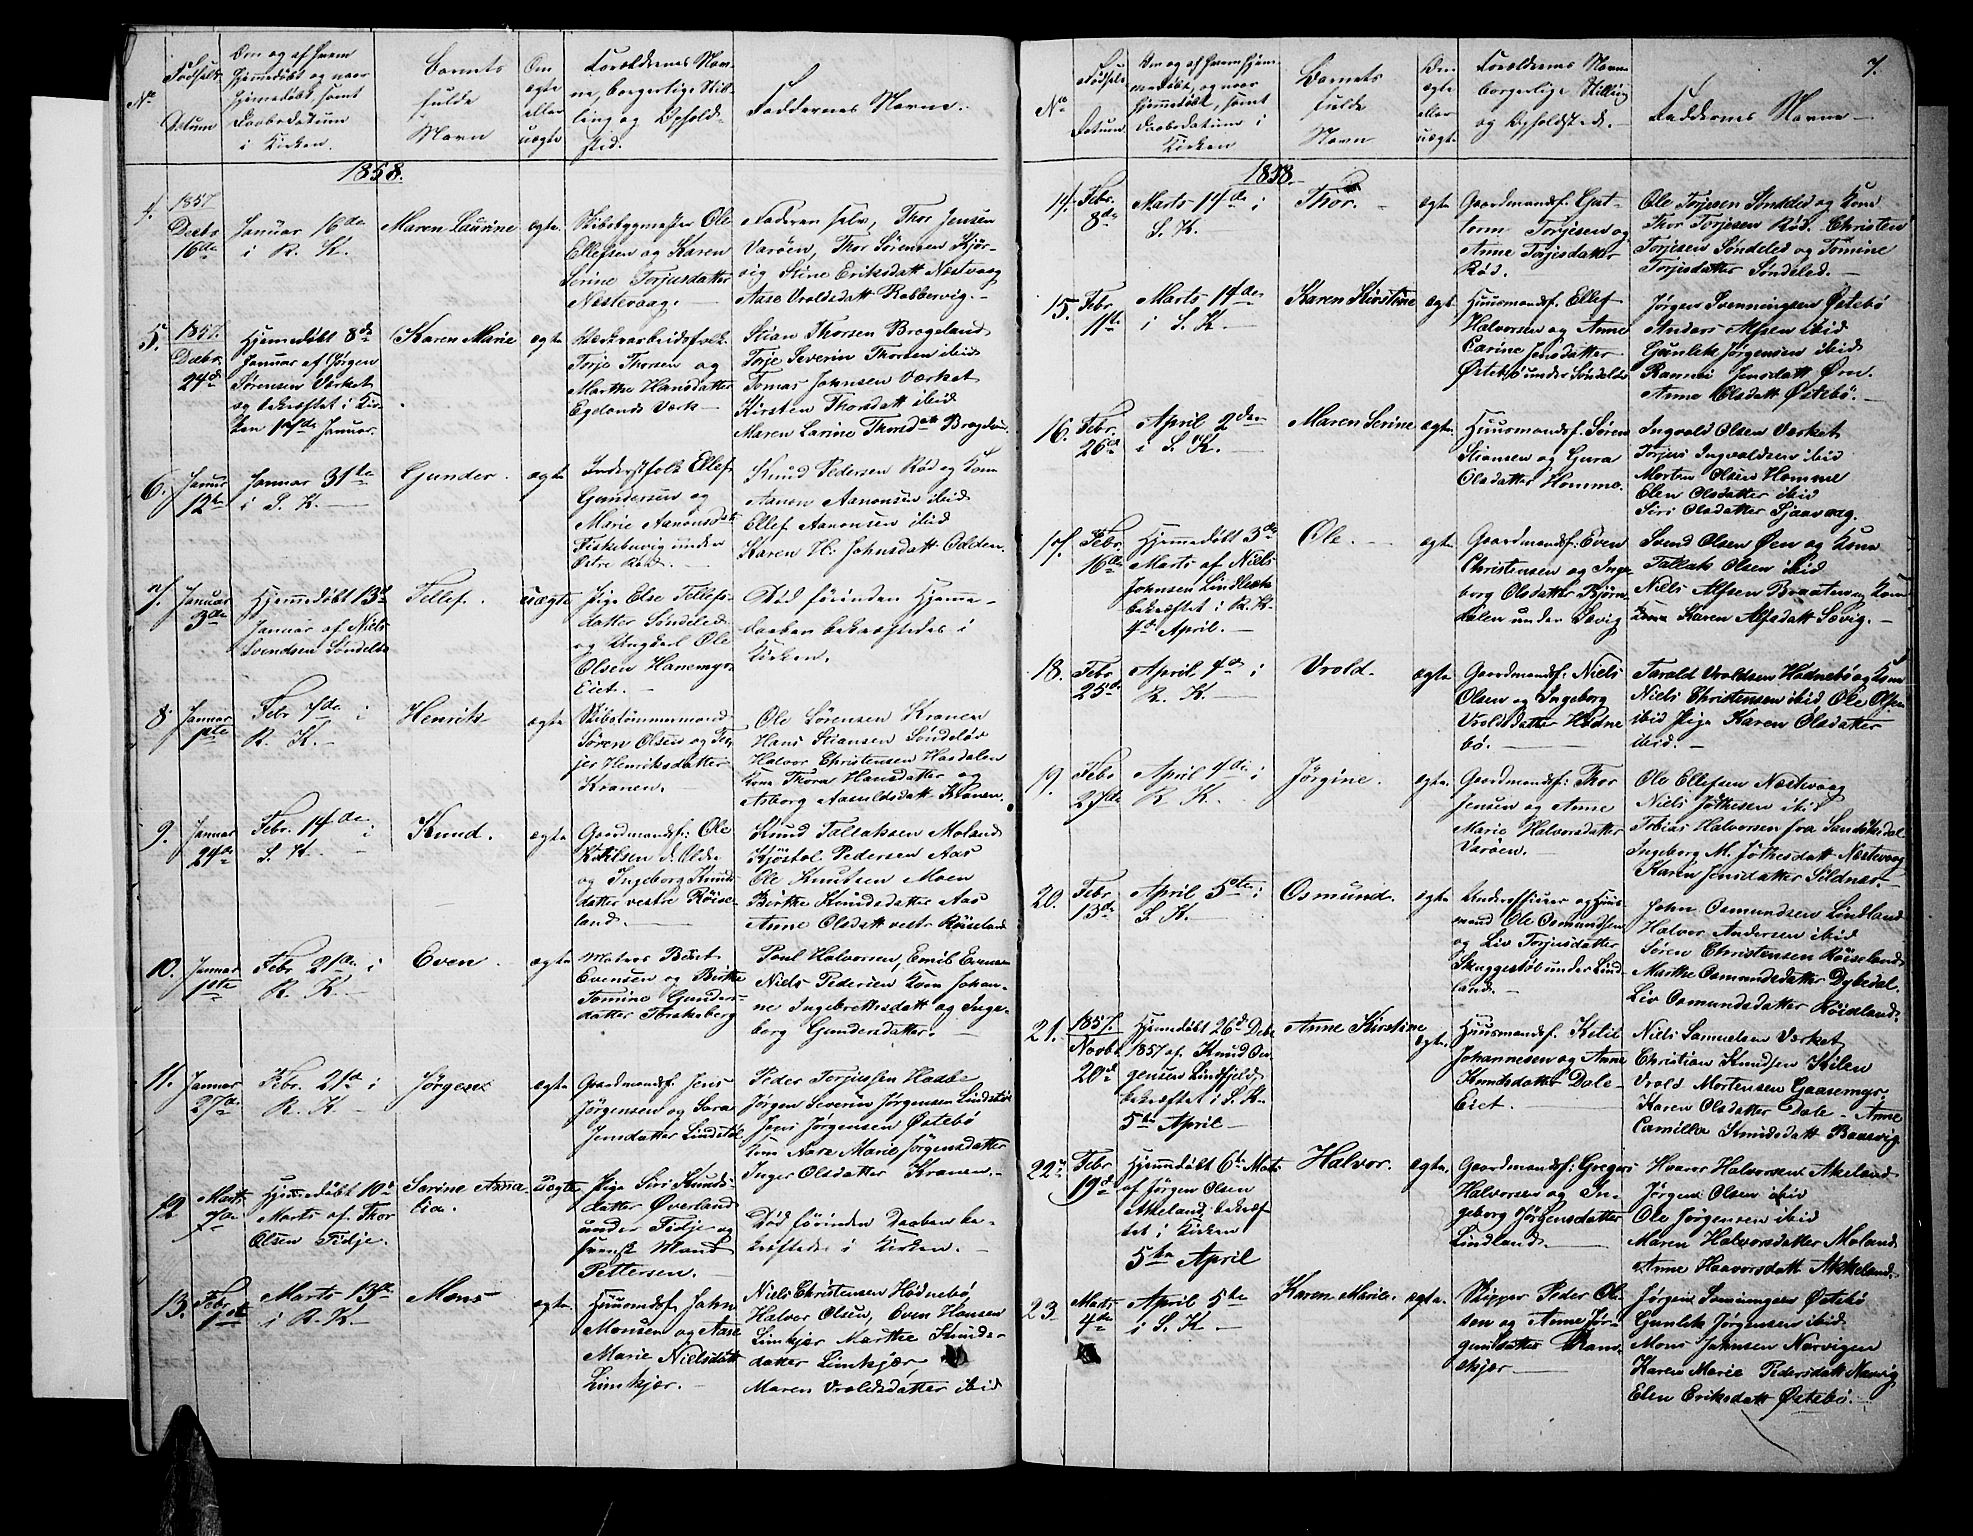 7.
No
Fødsels
Datum
Om og af hvem
hjemmedøbt og naar
hjemmedøbt, samt
Daabsdatum
i Kirken.
Barnets
fulde
Navn
Om
ægte
eller
uægte
Forældrenes Nav-
ne, borgerlige Stil-
ling og Opholds-
sted.
Faddernes Navne.
1858.
4.
1857
Decbr
16de
Januar 16de
i R. K.
Maren Laurine
ægte.
Skibsbygmester Ole
Ellefsen og Karen
Serine Torjesdatter
Næstevaag.
Faderen selv, Thor Jensen
Varöen, Thor Sörensen Kjör-
vig Stine Eriksdatt Næstvaag
Aase Vroldsdatt Robbervig.
5.
1857.
Decbr.
24de
Hjemmedöbt 8de
Januar af Jörgen
Sörensen Værket
og bekræftet i Kir-
ken 17de Januar.
Karen Marie
ægte
Værksarbeidsfolk
Torje Thorsen og
Marthe Hansdatter
Egelands Værk
Stian Thorsen Brægeland
Torje Severin Thorsen ibid
Tomas Johnsen Værket
Kirsten Thorsdatt ibid
Maren Larine Thorsdatt Brægeland
6.
Januar
12te
Januar 31te
i S. K.
Gunder.
ægte
Inderstfolk Ellef
Gundersen og
Marie Aanonsdatt
Fiskebuvig under
Östre Röd.
Knud Pedersen Röd og Kone
Aanon Aanonsen ibid
Ellef Aanonsen ibid
Karen H. Johnsdatt Odden.
7.
Januar
3de
Hjemmedöbt 13de
Januar af Niels
Svendsen Söndeled
Tellef.
uægte
Pige Else Tellefs-
datter Söndeled
og Ungkarl Ole
Olsen Hanemyr-
Eiet.
Död förinden Hjemme-
daaben bekræftedes i
Kirken.
8.
Januar
1ste
Febr 7de i
R. K.
Henrik
ægte
Skibstömmermand
Sören Olsen og Ter-
jer Henriksdatter
Kranen.
Ole Sörensen Kranen
Hans Stiansen Söndelöv
Halvor Christensen Hasdalen
Kone Thora Hansdatter og
Asborg Aanuldsdatt Kranen.
9.
Januar
24de
Febr. 14de i
S. K.
Knud.
ægte
Gaardmandsf: Ole
Kittilsen d. Oldre
og Ingeborg Knuds-
datter vestre Röise-
land.
Knud Tallaksen Moland
Kjöstol Pedersen Aas
Ole Knutsen Moen
Birthe Knudsdatter Aas
Anne Olsdatt vestr Röiseland
10.
Januar
1ste
Febr 21de i
R. K.
Even.
ægte
Matros Böret
Evensen og Birthe
Tomine Gunders-
datter Ibrakeberg
Poul Halvorsen, Emil Evensen
Niels Pedersen Kone Johan-
ne Ingebrethsdatt og Inge-
borg Gundersdatter.
11.
Januar
27de
Febr. 21de i
R. K.
Jörgen
ægte
Gaardmandsf. Jens
Jörgensen og Sara
Jensdatter Lindstöl
Peder Torjussen Hasbe
Jörgen Severin Jörgensen Lindstöl
Jens Jörgensen Östebö
Kone Nare Marie Jörgensdatter
Inger Olsdatter Kranen.
12
Marts
7de
Hjemmedöbt 10de
Marts af Thor
Olsen Fidje.
Serine Ama-
lia.
Uægte
Pige Siri Knuds-
datter Överland
under Fidje og
svensk Mand
Pettersen.
Död förinden Daaben be-
kræftedes i Kirken.
13.
Febr.
1ste
Marts 13de
i R. K.
Mons
ægte.
Huusmdsf John
Monsen og Aase
Marie Nielsdatt
Limkjær.
Niels Christensen Hödnebö
Halvor Olsen, Even Hansen
Limkjær Marthe Knuds-
datter Limkjær,
Maren Vroldsdatter ibid
No
Fødsels
Datum
Om og af hvem hjem-
medöbt, og naar
hjemmedöbt, samt
Daabsdatum i
Kirken
Barnets
fulde
Navn
Om
ægte
eller
uægte
Forældrenes Navne
borgerlige Stilling
og Opholdsted.
Faddernes Navne
1858.
14.
Febr.
8de
Marts 14de i
S. K.
Thor.
ægte
Gaardmand Gut-
torm Torjesen og
Anne Torjesdatter
Röd.
Ole Torjesen Söndeled og Kone
Thor Torjesen Röd. Christen
Torjesen Söndeled og Tomine
Torjesdatter Söndeled.
15.
Febr
11te
Marts 14de
i S. K.
Karen Kirstine
ægte.
Huusmandsf. Ellef
Halvorsen og Anne
Carine Jensdatter
Östebö under Söndeled
Jörgen Svenningsen Östebö
Anders Alfsen ibid
Gunlek Jörgensen ibid
Ramnei Jensdatt Öen.
Anne Olsdatt Östebö.
16.
Febr.
26de
April 2den
i S. K.
Maren Serine
ægte.
Huusmandsf. Sören
Stiansen og Gura
Olsdatter Homme.
Ingvald Olsen Værket
Torjus Ingvaldsen ibid
Morten Olsen Homme
Elen Olsdatter ibid
Siri Olsdatter Sjaavaag.
17.
Febr.
16de
Hjemmedöbt 3de
Marts af Niels
Johnsen Lindlökk
bekræftet i R. K.
4de April.
Ole.
ægte
Gaardmandsf: Even
Christensen og Inge-
borg Olsdatter Björn-
dalen under Sævig
Svend Olsen Öen og Kone
Tallak Olsen ibid
Niels Alfsen Braaten og Kone
Karen Alfsdatt Sævig.
18.
Febr
25de
April 4de i
R. K.
Vrold.
ægte.
Gaardmandsf: Niels
Olsen og Ingeborg
Vroldsdatter Hödne
bö.
Tarald Vroldsen Hödnebö og Kone
Niels Christensen ibid Ole Olsen
ibid Pige Karen Olsdatter
ibid.
19.
Febr
27de
April 4de i
R. K.
Jörgine.
ægte.
Gaardmandsf: Thor
Jensen og Anne
Marie Halvorsdatter
Varöen.
Ole Ellefsen Næstevaag
Niels Jökhesen ibid
Tobias Halvorsen fra Sandökedal
Ingeborg M. Jökhesdatt Næstevaag
Karen Jensdatter Sildnæs.
20.
Febr
13de
April 5te i
S. K.
Osmund.
ægte.
Underofficer og Huus-
mand Ole Osmundsen
og Liv Torjusdatter
Skuggestöl under Lind-
land.
John Osmundsen Lindland
Halvor Andersen ibid
Sören Christensen Röiseland
Marthe Osmundsdatter Dybedal.
Liv Osmundsdatter Röiseland.
21.
1857.
Novbr
20de
Hjemmedöbt 26de Decbr
1857 af Knud Jör-
gensen Lindfjeld,
bekræftet i S. K.
5te April
Anne Kirstine
ægte.
Huusmandsf. Ketil
Johannesen og Anne
Knudsdatter Dale-
Eiet.
Niels Samuelsen Værket
Christian Knudsen Kilen
Vrold Mortensen Gaasemyr.
Karen Olsdatter Dale. Anne
Camilla Knudsdatt Baasvig
22.
Febr
19de
Hjemmedöbt 6te Mts
af Jörgen Olsen
Akeland, bekræf-
tet i Kirken
5te April
Halvor.
ægte.
Gaardmandsf: Gregers
Halvorsen og In-
geborg Jörgensdatter
Lindland.
Hvaror Halvorsen Akeland
Jörgen Olsen ibid
Ole Jörgensen ibid
Maren Halvorsdatter Moland
Anne Haavorsdatt Akkeland.
23
Marts
4de
April 5te
i S. K.
Karen Marie.
ægte.
Skipper Peder Ol-
sen og Anne Jör-
gensdatter Rams-
skjær
Jörgen Svenningsen Östebö
Gunlek Jörgensen ibid.
Mons Johnsen Narvigen
Karen Marie Pedersdatt Narvig
Elen Eriksdatt Östebö.